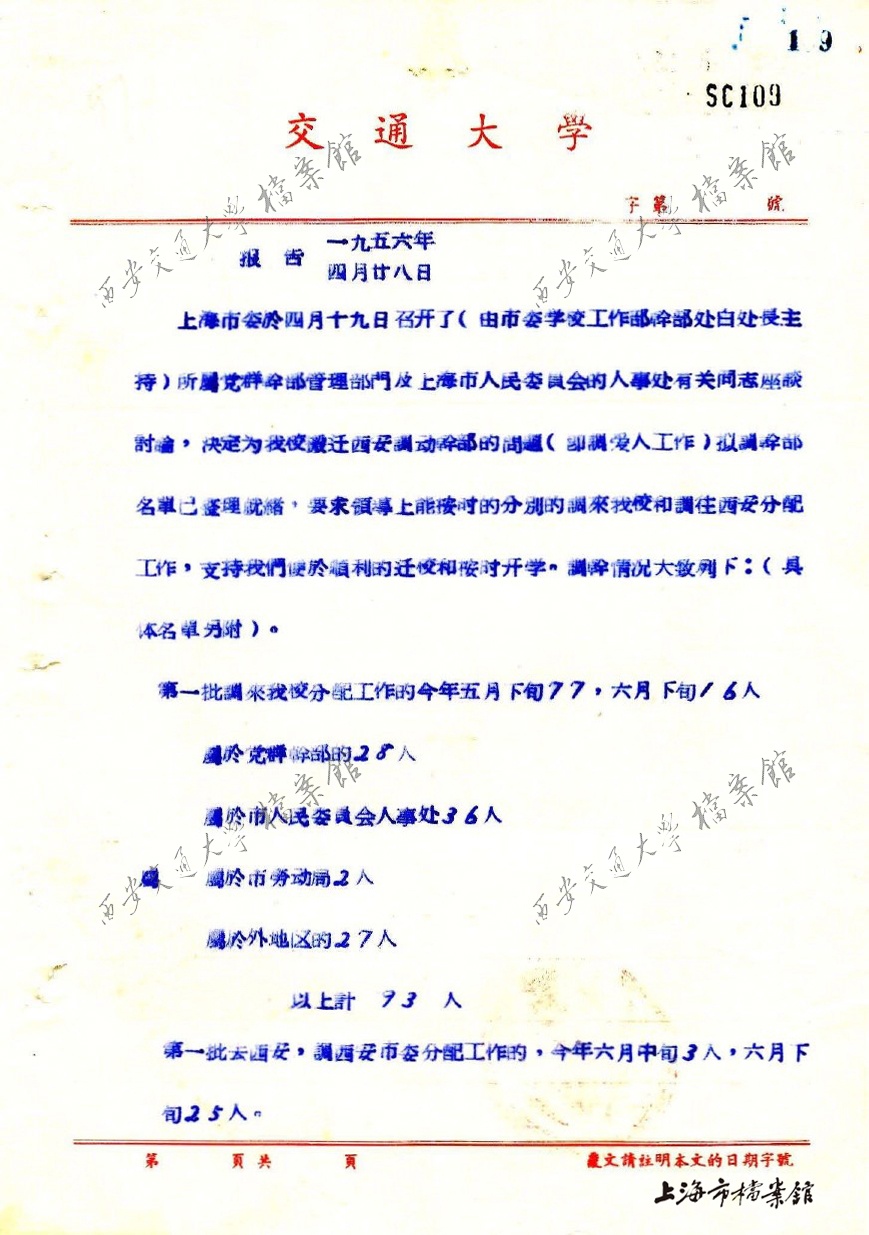 19
SC109
交通大學
字第 號
报告 一九五六年
四月廿八日
上海市委於四月十九日召开了(由市委学校工作部幹部处白处長主
持)所屬党群幹部管理部門及上海市人民委員会的人事处有关同志座談
討論,决定为我校搬迁西安調动幹部的问題(即調爱人工作)拟調幹部
名單已整理就緒,要求領導上能按时的分别的調来我校和調往西安分配
工作,支持我們便於順利的迁校和按时开学。調幹情况大致列下:(具
体名單另附)。
第一批調來我校分配工作的今年五月下旬77,六月下旬16人
屬於党群幹部的28人
屬於市人民委員会人事处36人
屬於市劳动局2人
屬於外地区的27人
以上計 93 人
第一批去西安,調西安市委分配工作的,今年六月中旬3人,六月下
旬25人。
第 頁共 頁 覆文請註明本文的日期字號
上海市檔案館
西安交通大学檔案館
西安交通大学檔案館
西安交通大学檔案館
西安交通大学檔案館